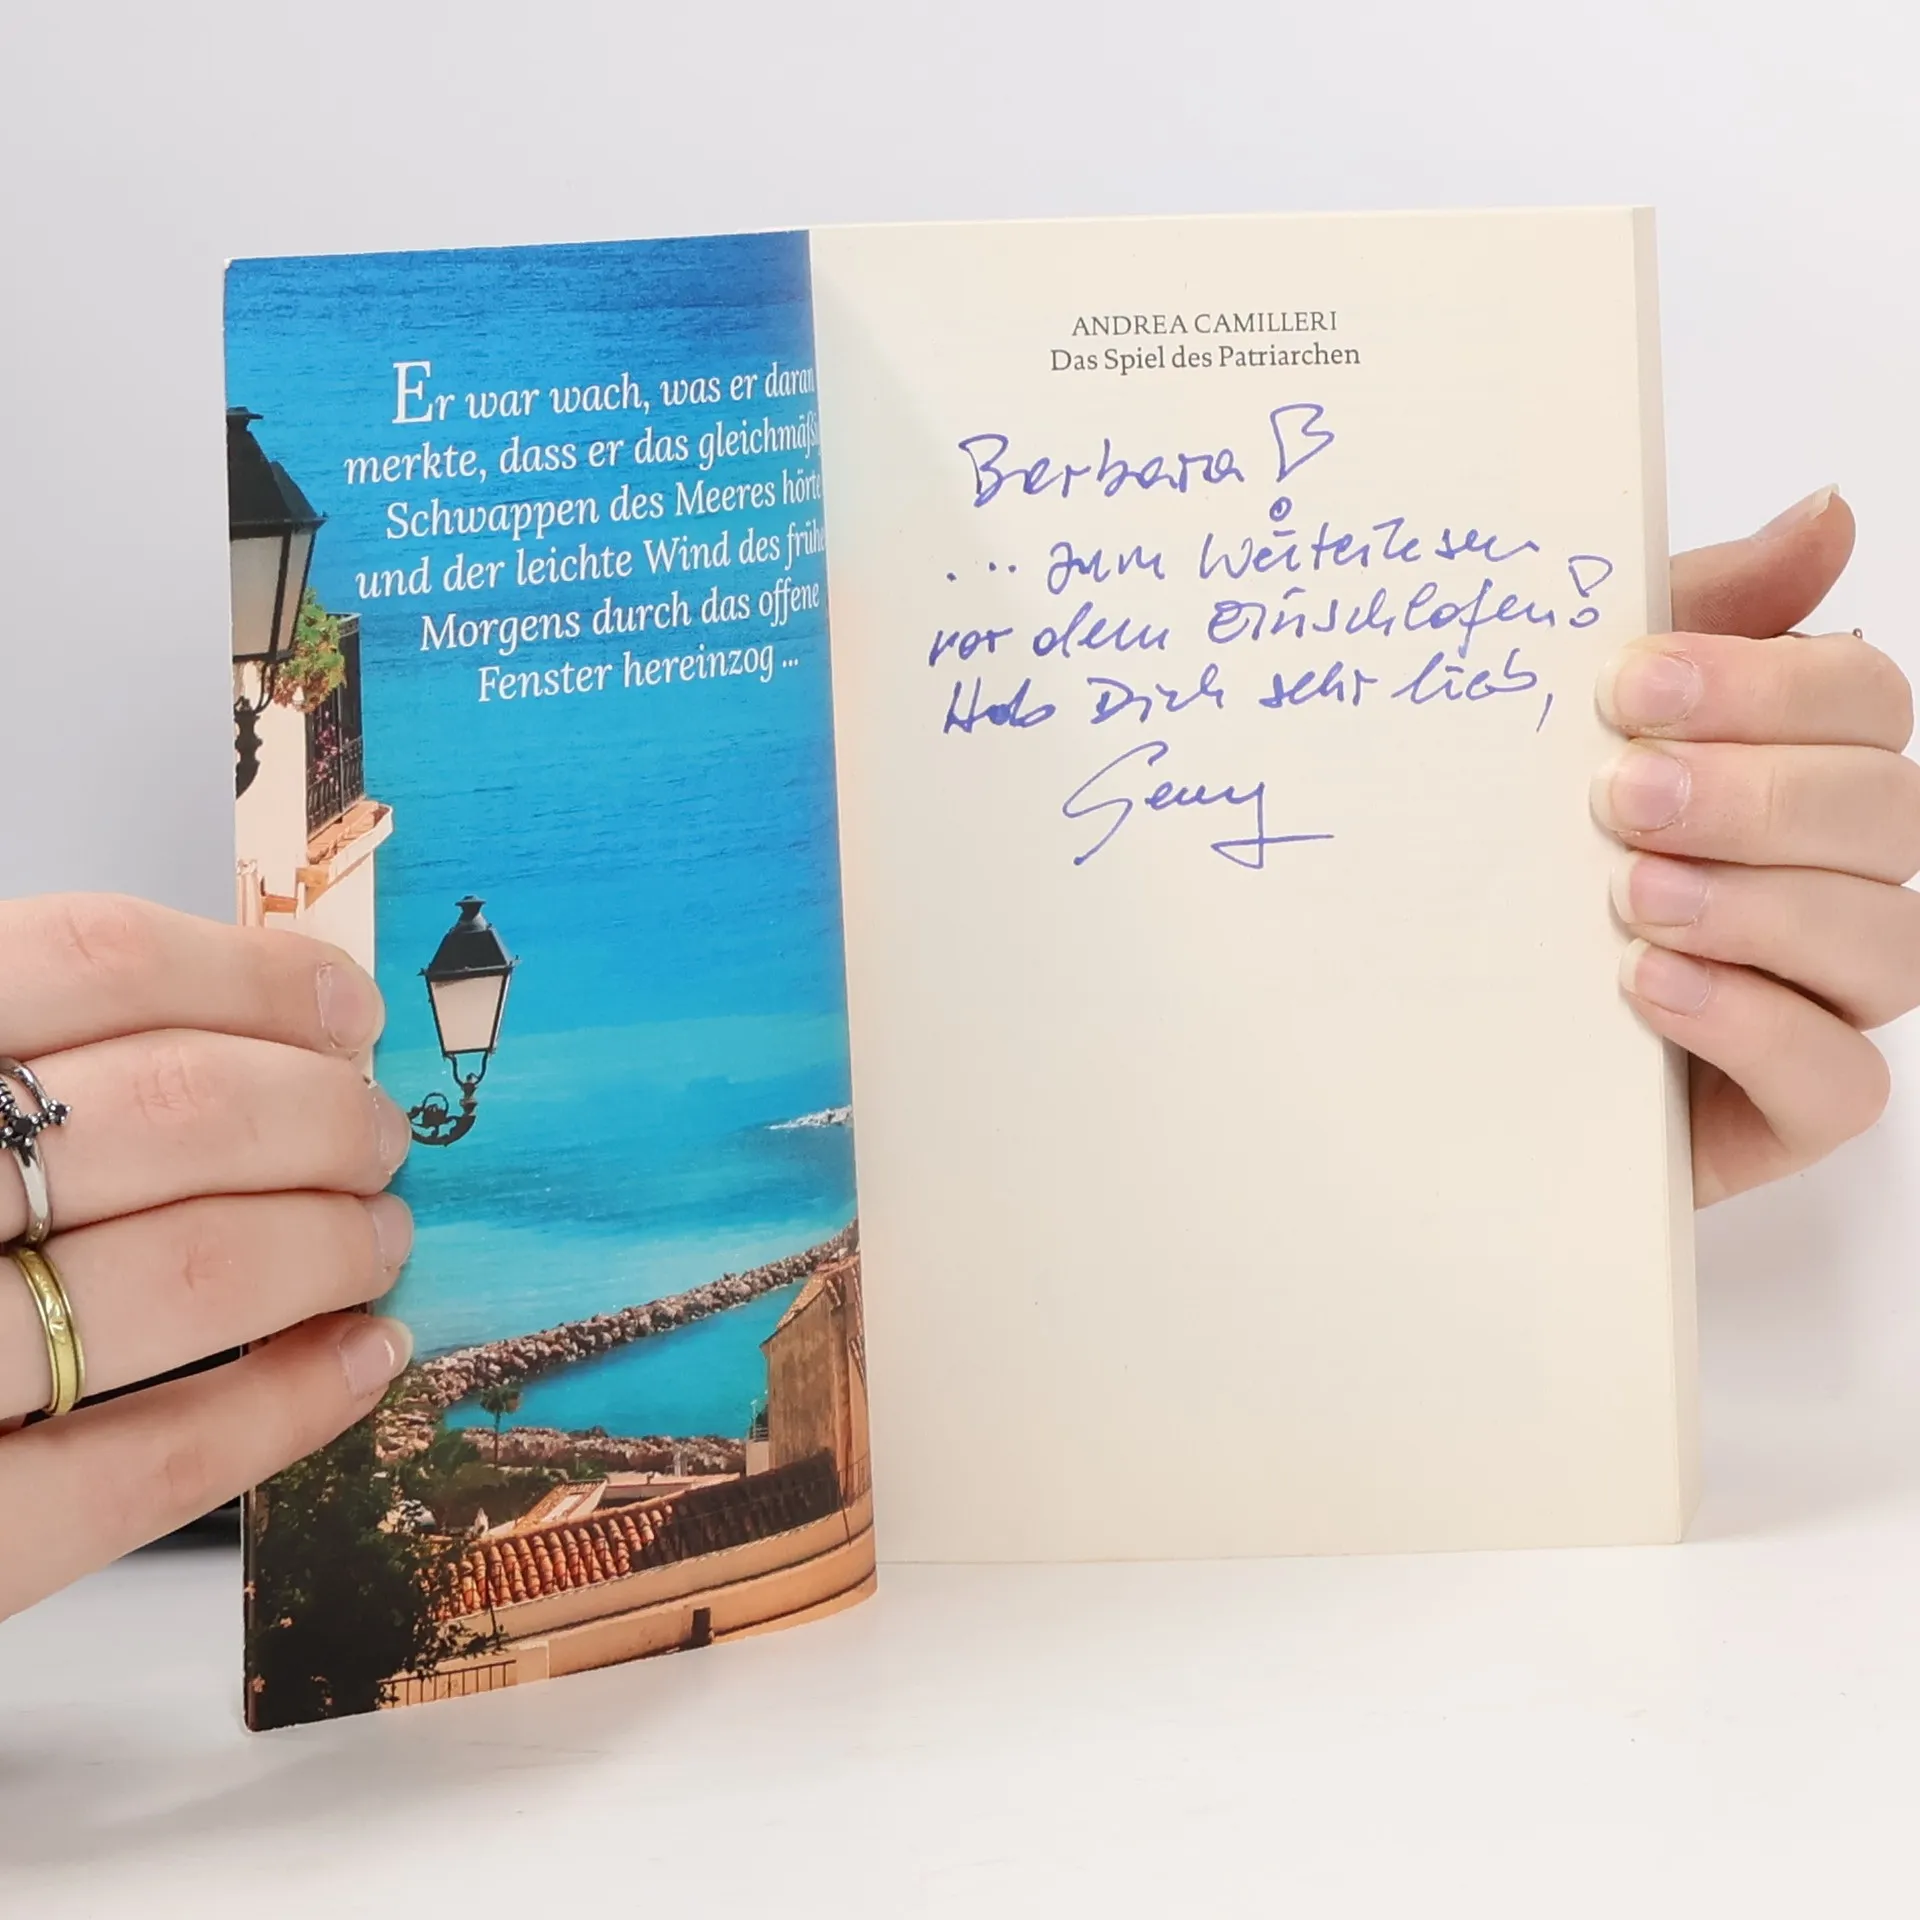 Er war wach, was er daran
merkte, dass er das gleichmäßi
Schwappen des Meeres hörte
und der leichte Wind des frühe
Morgens durch das offene
Fenster hereinzog ...
ANDREA CAMILLERI
Das Spiel des Patriarchen
Barbara!
... zum Weiterlesen
vor dem Einschlafen!
Hab Dich sehr lieb,